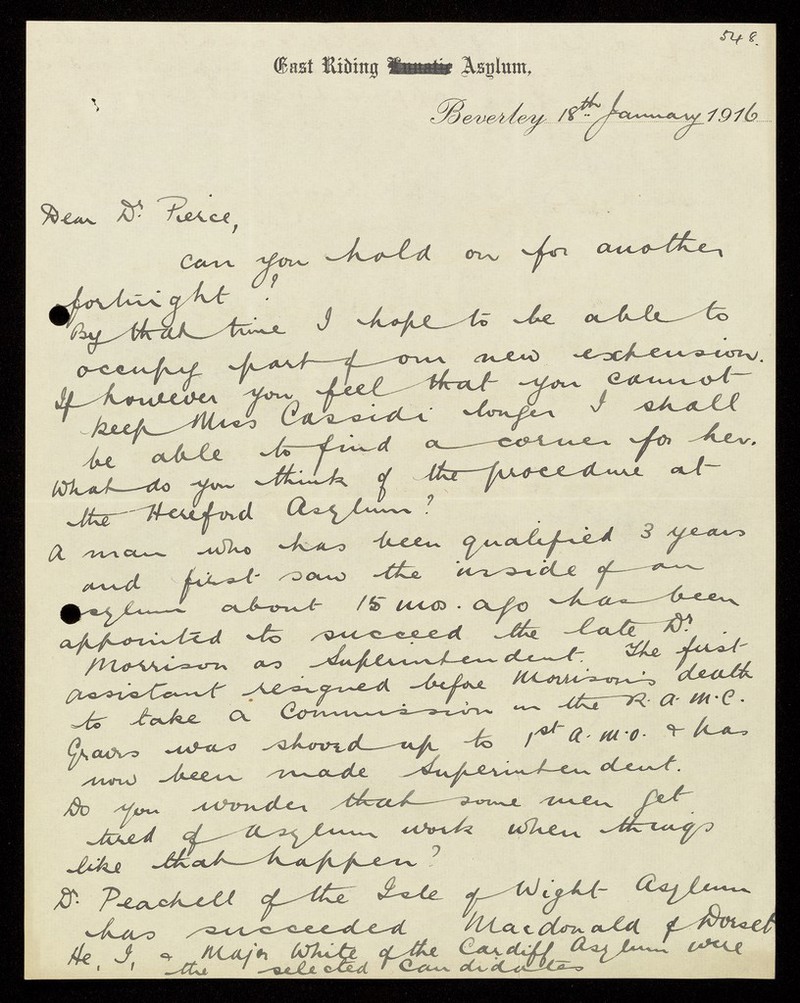 548.
East Riding Lunatic Asylum,
Beverley 18th January 1916
Dear Dr. Pierce,
can you hold on for another
fortnight?
By that time I hope to be able to
occupy part of our new extension.
If however you feel that you cannot
keep Miss Cassidi longer I shall
be able to find a corner for her.
What do you think of the procedure at
the Hereford Asylum?
A man who has been qualified 3 years
and first saw the inside of an
asylum about 15 mos. ago has been
appointed to succeed the late Dr.
Morrison as Superintendent. The first
assistant resigned before Morrison's death
to take a Commission in the R.A.M.C.
Graves was shoved up to 1st A.M.O. & has
now been made Superintendent.
Do you wonder that some men get
tired of asylum work when things
like that happen?
Dr. Peachell of the Isle of Wight Asylum
has succeeded Macdonald of Dorset
He, I, & Major White of the Cardiff Asylum were
the selected candidates